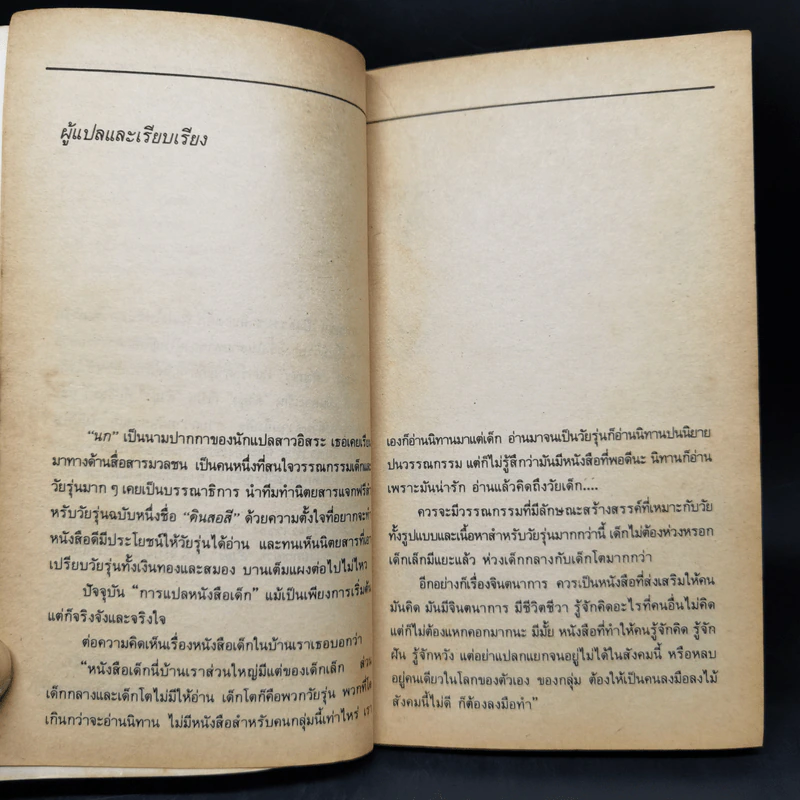 ผู้แปลและเรียบเรียง
“นก” เป็นนามปากกาของนักแปลสาวอิสระ เธอเคยเรียน
มาทางด้านสื่อสารมวลชน เป็นคนหนึ่งที่สนใจวรรณกรรมเด็กและ
วัยรุ่นมาก ๆ เคยเป็นบรรณาธิการ นำทีมทำนิตยสารแจกฟรีสำ
หรับวัยรุ่นฉบับหนึ่งชื่อ “ดินสอสี” ด้วยความตั้งใจที่อยากจะทำ
หนังสือดีมีประโยชน์ให้วัยรุ่นได้อ่าน และทนเห็นนิตยสารที่เอา
เปรียบวัยรุ่นทั้งเงินทองและสมอง บานเต็มแผงต่อไปไม่ไหว
ปัจจุบัน “การแปลหนังสือเด็ก” แม้เป็นเพียงการเริ่มต้น
แต่ก็จริงจังและจริงใจ
ต่อความคิดเห็นเรื่องหนังสือเด็กในบ้านเราเธอบอกว่า
“หนังสือเด็กนี่บ้านเราส่วนใหญ่มีแต่ของเด็กเล็ก ส่วน
เด็กกลางและเด็กโตไม่มีให้อ่าน เด็กโตก็คือพวกวัยรุ่น พวกที่โต
เกินกว่าจะอ่านนิทาน ไม่มีหนังสือสำหรับคนกลุ่มนี้เท่าไหร่ เรา
เองก็อ่านนิทานมาแต่เด็ก อ่านมาจนเป็นวัยรุ่นก็อ่านนิทานปนนิยาย
ปนวรรณกรรม แต่ก็ไม่รู้สึกว่ามันมีหนังสือที่พอดีนะ นิทานก็อ่าน
เพราะมันน่ารัก อ่านแล้วคิดถึงวัยเด็ก....
ควรจะมีวรรณกรรมที่มีลักษณะสร้างสรรค์ที่เหมาะกับวัย
ทั้งรูปแบบและเนื้อหาสำหรับวัยรุ่นมากกว่านี้ เด็กไม่ต้องห่วงหรอก
เด็กเล็กมีแยะแล้ว ห่วงเด็กกลางกับเด็กโตมากกว่า
อีกอย่างก็เรื่องจินตนาการ ควรเป็นหนังสือที่ส่งเสริมให้คน
มันคิด มันมีจินตนาการ มีชีวิตชีวา รู้จักคิดอะไรที่คนอื่นไม่คิด
แต่ก็ไม่ต้องแหกคอกมากนะ มีมั้ย หนังสือที่ทำให้คนรู้จักคิด รู้จัก
ฝัน รู้จักหวัง แต่อย่าแปลกแยกจนอยู่ไม่ได้ในสังคมนี้ หรือหลบ
อยู่คนเดียวในโลกของตัวเอง ของกลุ่ม ต้องให้เป็นคนลงมือลงไม้
สังคมนี้ไม่ดี ก็ต้องลงมือทำ”